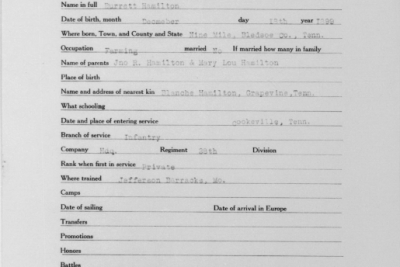 Name in full Burrett Hamilton
Date of birth, month December day 15th 1890
Where born, Town, and County and State Nine Mile, Bledsoe Co., Tenn.
Occupation Farming married No If married how many in family
Name of parents Jno R. Hamilton & Mary Lou Hamilton
Place of birth
Name and address of nearest kin Blanche Hamilton, Grapevine, Tenn.
What schooling
Date and place of entering service Cookeville, Tenn.
Branch of service Infantry
Company Hdq. Regiment 36th Division
Rank when first in service Private
Where trained Jefferson Barracks, Mo.
Camps
Date of sailing Date of arrival in Europe
Transfers
Promotions
Honors
Battles